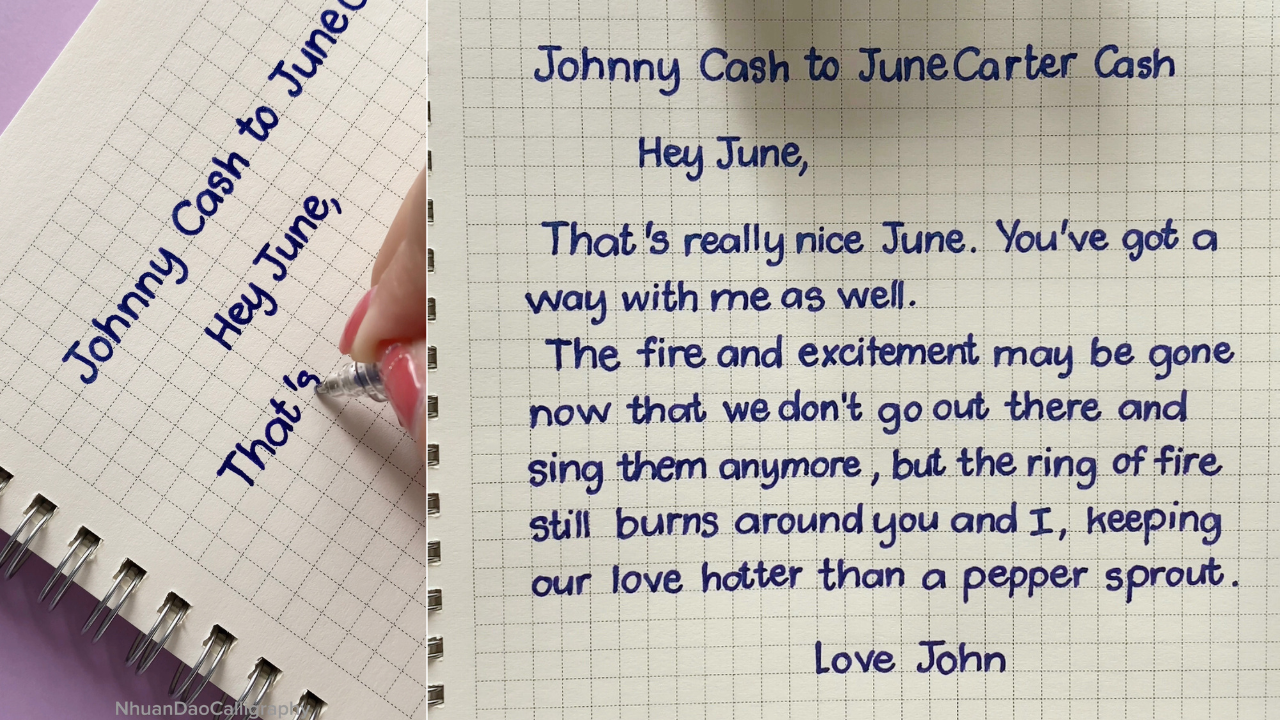 Johnny Cash to June C
Hey June,
That's
NhuanDaoCalligraphy
Johnny Cash to June Carter Cash
Hey June,
That's really nice June. You've got a
way with me as well.
The fire and excitement may be gone
now that we don't go out there and
sing them anymore, but the ring of fire
still burns around you and I, keeping
our love hotter than a pepper sprout.
Love John